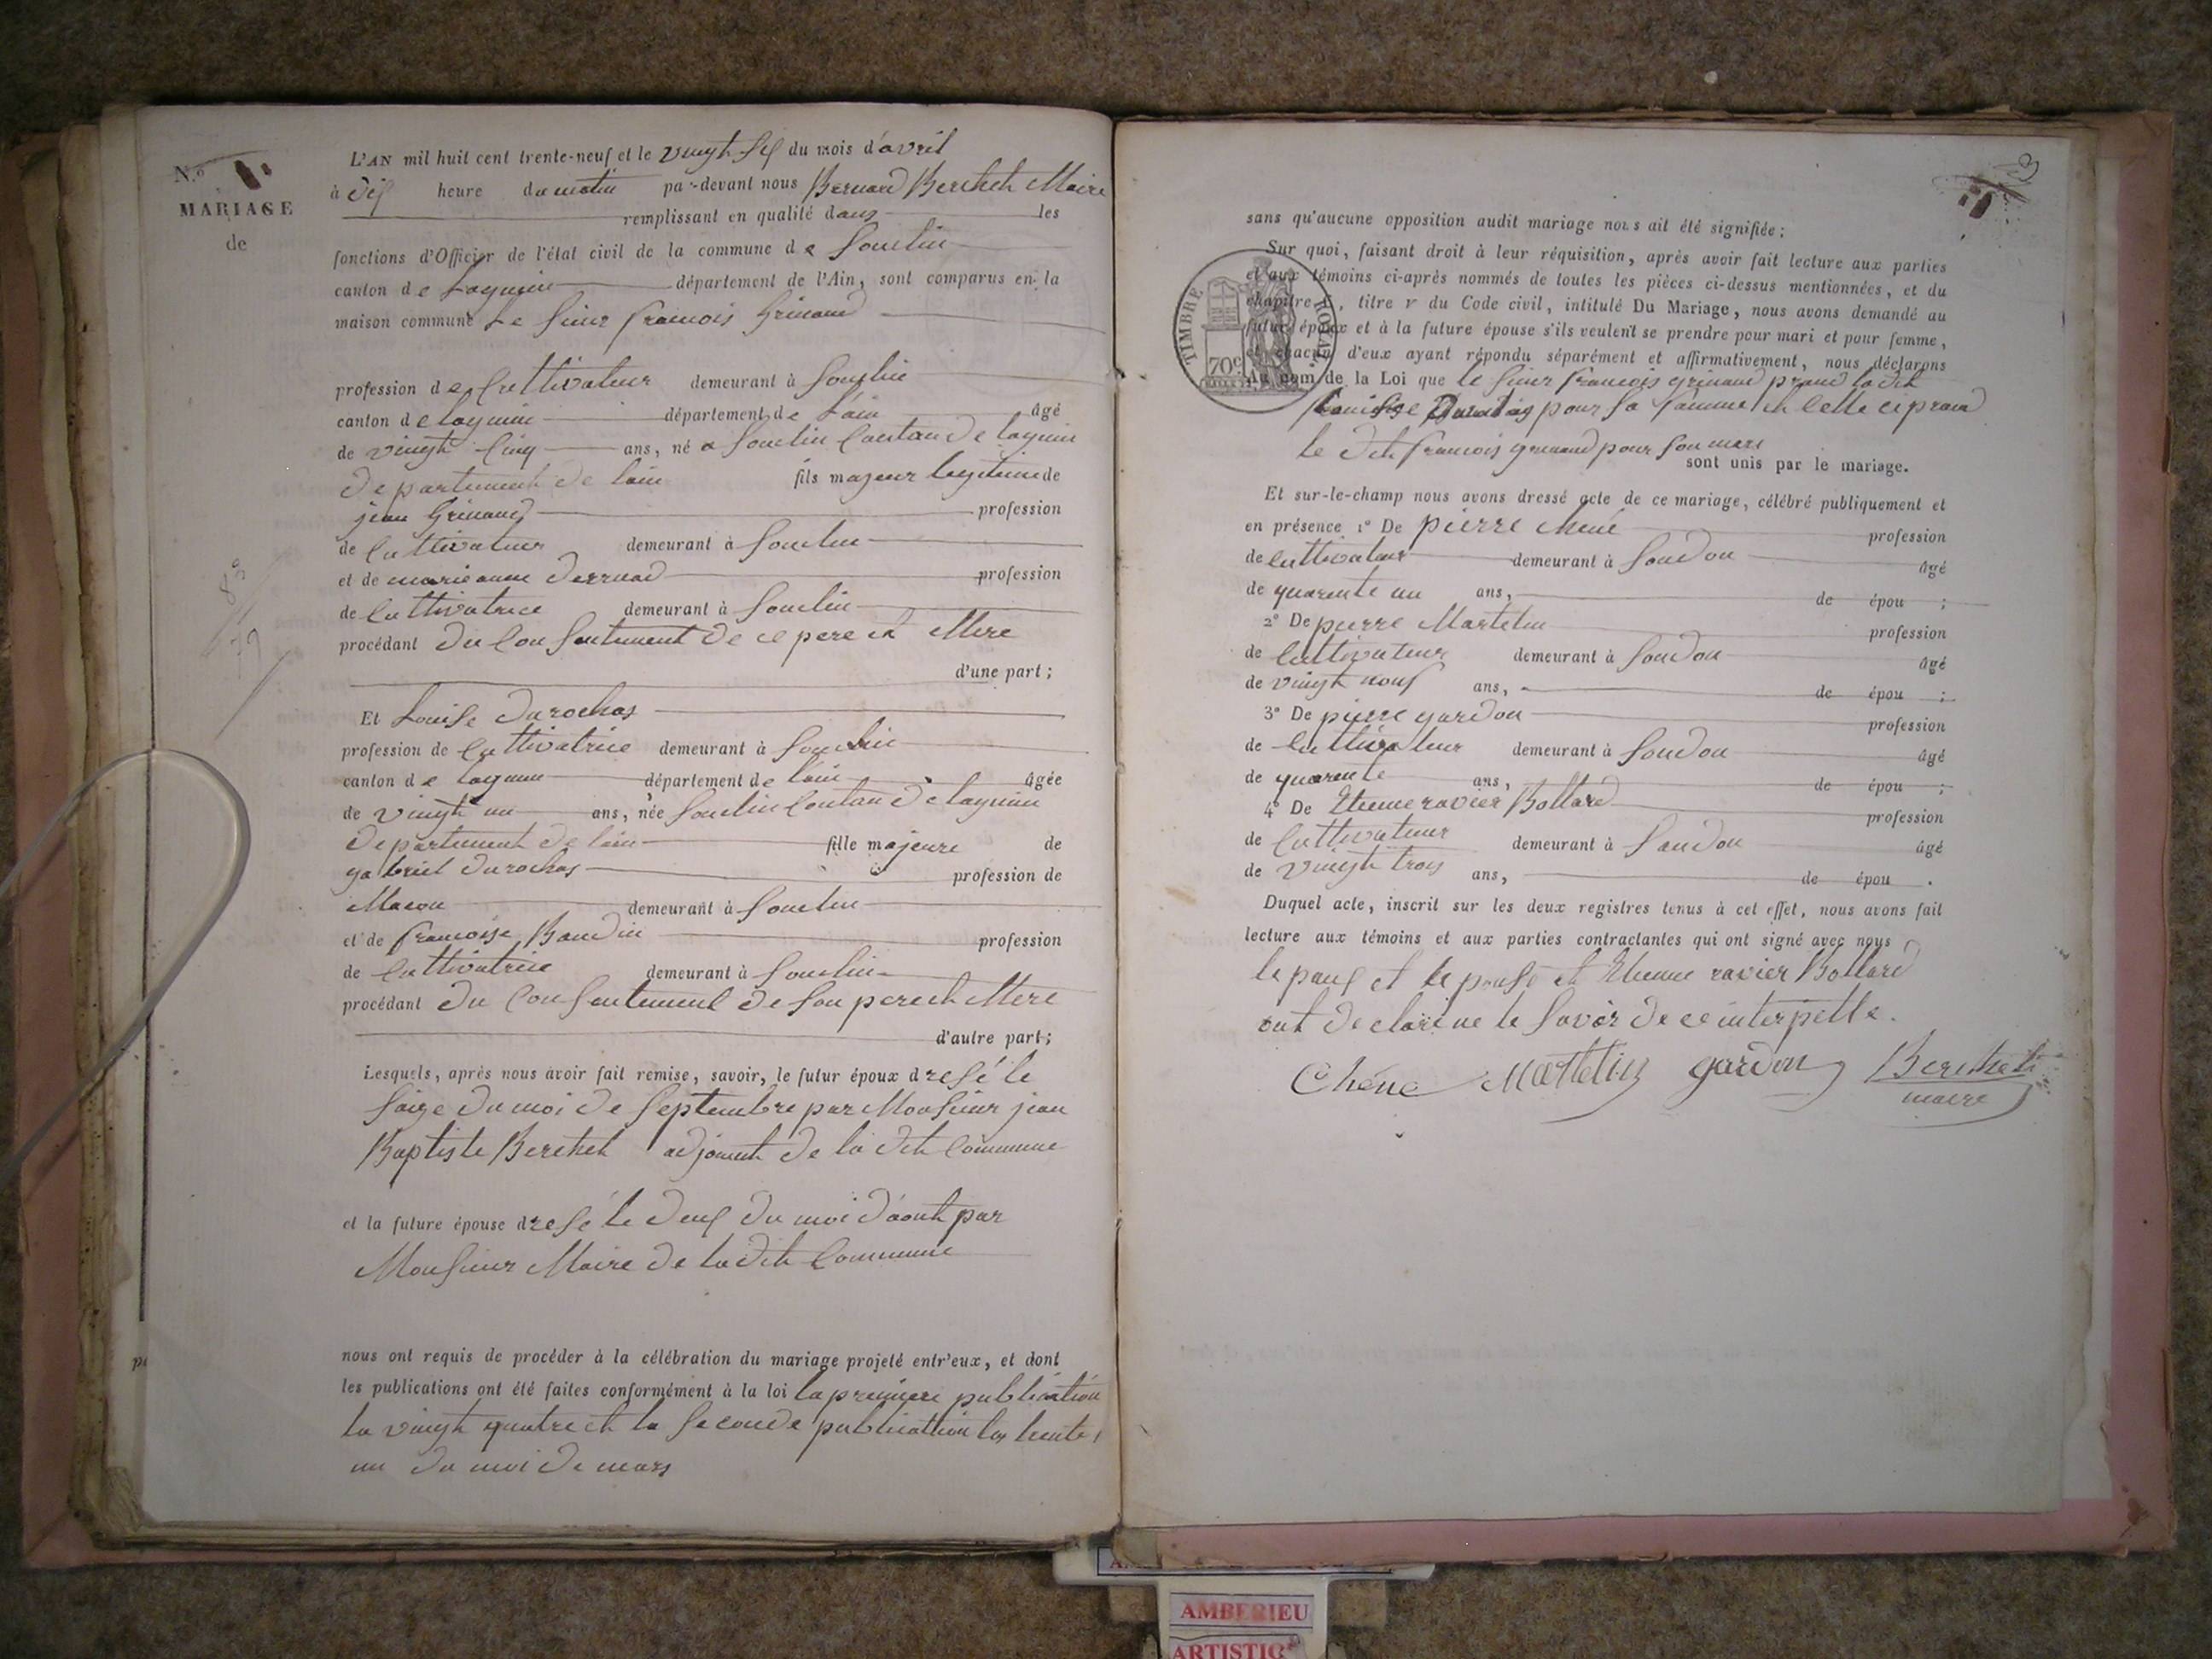 N.º
MARIAGE
de
L'AN mil huit cent trente-neuf et le vingt six du mois d'avril
à dix heure du matin par-devant nous Bernard Berthet Maire
remplissant en qualité dans les
fonctions d'Officier de l'état civil de la commune de Souclin
canton de Lagnieu département de l'Ain, sont comparus en la
maison commune Le sieur francois Grinand
profession de Cultivateur demeurant à Souclin
canton de lagnieu département de l'ain âgé
de vingt cinq ans, né a Souclin Canton de lagnieu
departement de lain fils majeur legitime de
jean Grinand profession
de Cultivateur demeurant à Souclin
et de marie anne profession
de Cultivatrice demeurant à Souclin
procédant du Consentement de ce pere et Mere
d'une part;
Et Louise durochas
profession de Cultivatrice demeurant à Souclin
canton de lagnieu département de lain âgée
de vingt un ans, née Souclin Contan de lagnieu
departement de lain fille majeure de
gabriel durochas profession de
Macon demeurant à Souclin
et de francoise Baudin profession
de Cultivatrice demeurant à Souclin
procédant du Consentement de son pere et Mere
d'autre part;
Lesquels, après nous avoir fait remise, savoir, le futur époux dresé le
saize du moi de septembre par Monsieur jean
Baptiste Berthet adjoint de la dit Commune
et la future épouse dresé le deux du moi d'aout par
Monsieur Maire de la dit Commune
nous ont requis de procéder à la célébration du mariage projeté entr'eux, et dont
les publications ont été faites conformément à la loi la premiere publication
la vingt quatre et la seconde publication las trente
un du moi de mars
3
sans qu'aucune opposition audit mariage nous ait été signifiée;
Sur quoi, faisant droit à leur réquisition, après avoir fait lecture aux parties
et aux témoins ci-après nommés de toutes les pièces ci-dessus mentionnées, et du
chapitre , titre v du Code civil, intitulé Du Mariage, nous avons demandé au
futur époux et à la future épouse s'ils veulent se prendre pour mari et pour femme,
et chacun d'eux ayant répondu séparément et affirmativement, nous déclarons
Au nom de la Loi que le sieur francois grinand prand la dit
Louise pour sa famme et celle ci prand
le dit francois grinand pour son mari
sont unis par le mariage.
TIMBRE ROYAL
70c
Et sur-le-champ nous avons dressé acte de ce mariage, célébré publiquement et
en présence 1º De pierre Chené profession
de Cultivateur demeurant à Soudon âgé
de quarente un ans, de épou ;
2º De pierre Martelin profession
de Cultivateur demeurant à Soudon âgé
de vingt nouf ans, de épou ;
3º De pierre gardon profession
de Cultivateur demeurant à Soudon âgé
de quarente ans, de épou ;
4º De Etienne ravier Bollard profession
de Cultivateur demeurant à Soudon âgé
de vingt troy ans, de épou .
Duquel acte, inscrit sur les deux registres tenus à cet effet, nous avons fait
lecture aux témoins et aux parties contractantes qui ont signé avec nous
le poux et le pouse et Etienne ravier Bollard
ont declaré ne le savoir de ce interpelle.
Chéne Martelin gardon Berthet
maire
AMBERIEU
ARTISTIQ